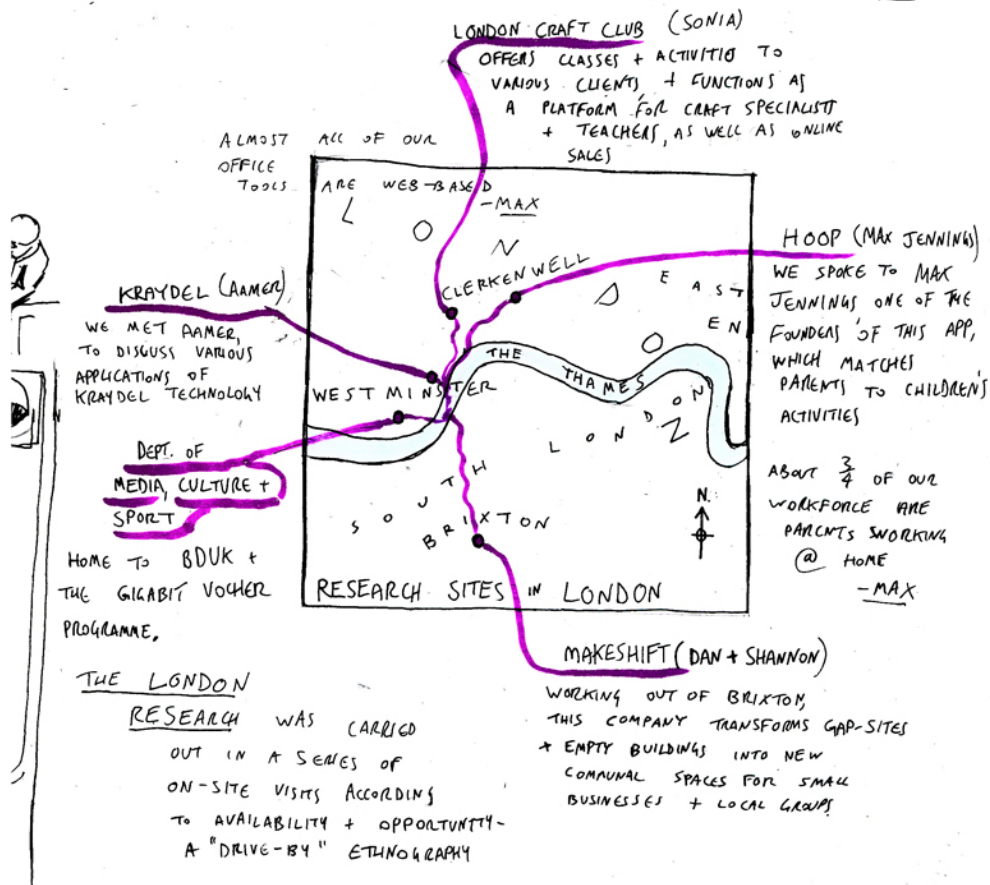 LONDON CRAFT CLUB (SONIA)
OFFERS CLASSES + ACTIVITIES TO
VARIOUS CLIENTS + FUNCTIONS AS
A PLATFORM FOR CRAFT SPECIALISTS
+ TEACHERS, AS WELL AS ONLINE
SALES
ALMOST ALL OF OUR
OFFICE
TOOLS ARE WEB-BASED
-MAX
LONDON
CLERKENWELL
EAST
EN
HOOP (MAX JENNINGS)
WE SPOKE TO MAX
JENNINGS ONE OF THE
FOUNDERS OF THIS APP,
WHICH MATCHES
PARENTS TO CHILDREN'S
ACTIVITIES
ABOUT 3/4 OF OUR
WORKFORCE ARE
PARENTS WORKING
@ HOME
-MAX
KRAYDEL (AAMER)
WE MET AAMER,
TO DISCUSS VARIOUS
APPLICATIONS OF
KRAYDEL TECHNOLOGY
THE THAMES
WESTMINSTER
DEPT. OF
MEDIA, CULTURE +
SPORT
HOME TO BDUK +
THE GIGABIT VOCHER
PROGRAMME.
SOUTH LONDON
BRIXTON
N
RESEARCH SITES IN LONDON
MAKESHIFT (DAN + SHANNON)
WORKING OUT OF BRIXTON,
THIS COMPANY TRANSFORMS GAP-SITES
+ EMPTY BUILDINGS INTO NEW
COMMUNAL SPACES FOR SMALL
BUSINESSES + LOCAL GROUPS
THE LONDON
RESEARCH WAS CARRIED
OUT IN A SERIES OF
ON-SITE VISITS ACCORDING
TO AVAILABILITY + OPPORTUNITY-
A "DRIVE-BY" ETHNOGRAPHY